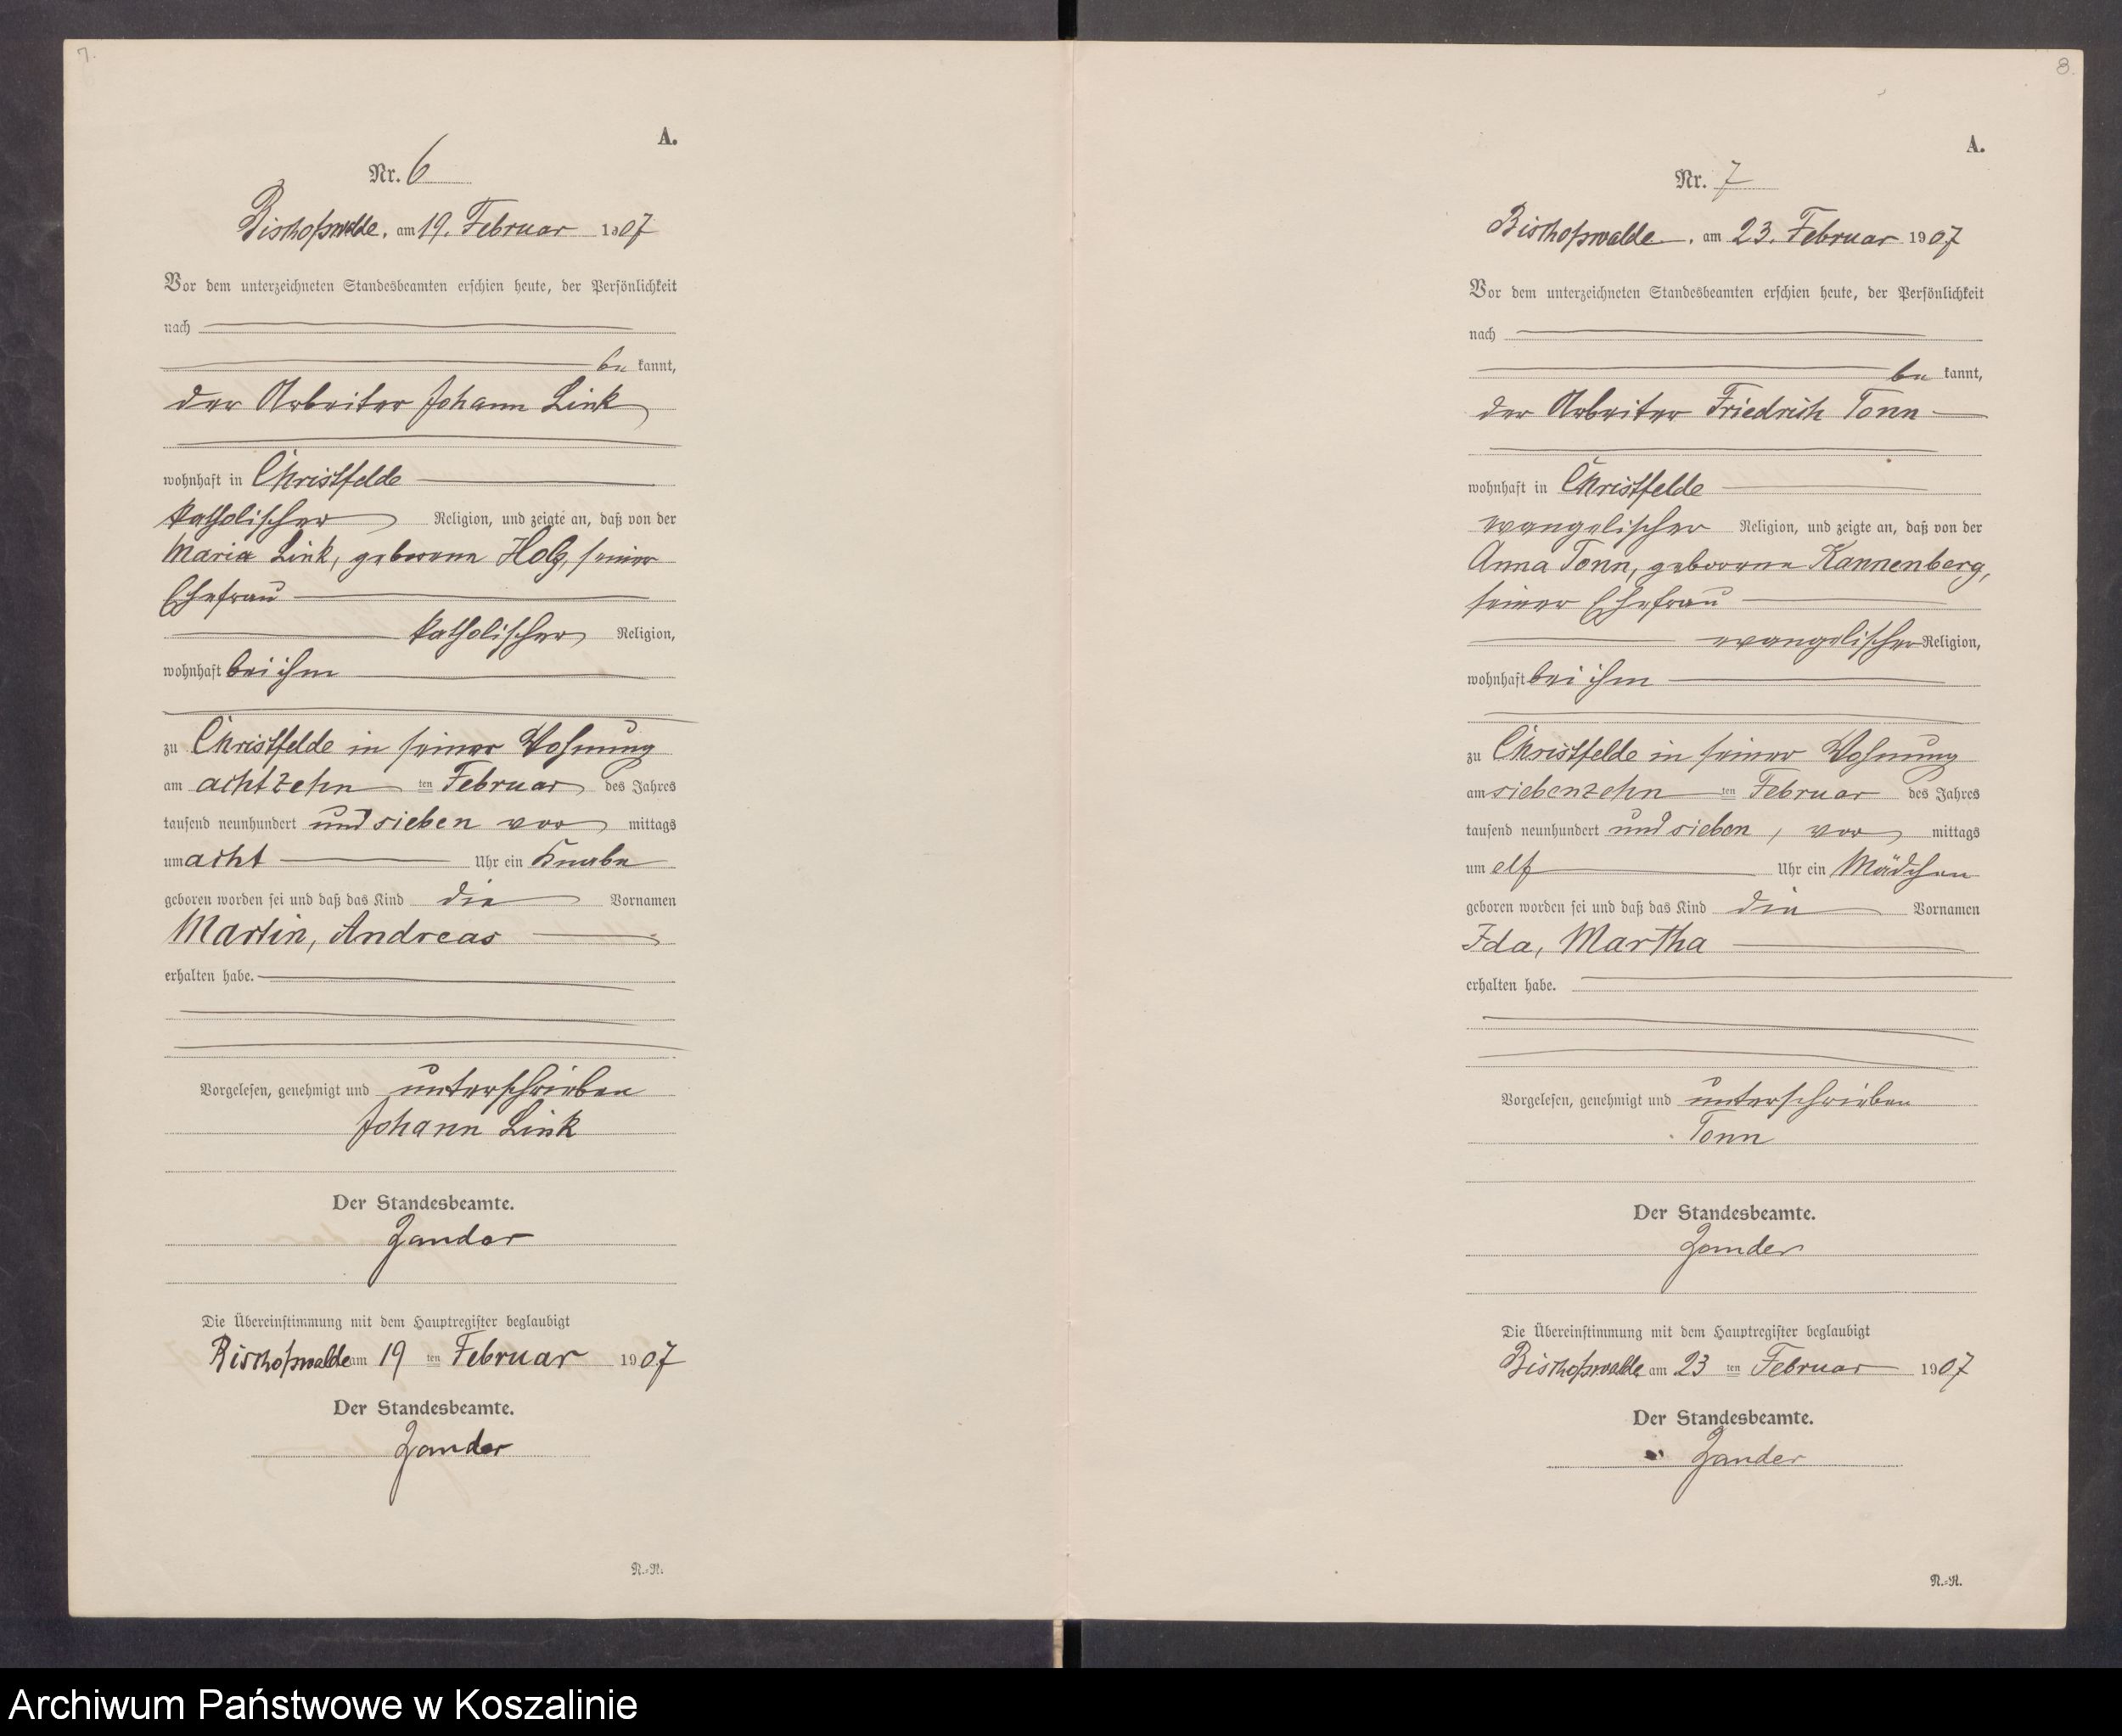 7.
A.
Nr. 6
Bischofswalde, am 19. Februar 1907
Vor dem unterzeichneten Standesbeamten erschien heute, der Persönlichkeit
nach
be kannt,
der Arbeiter Johann Link
wohnhaft in Christfelde
katholischer Religion, und zeigte an, daß von der
Maria Link, geborene Holz, seiner
Ehefrau
katholischer Religion,
wohnhaft bei ihm
zu Christfelde in seiner Wohnung
am achtzehn ten Februar des Jahres
tausend neunhundert und sieben vor mittags
um acht Uhr ein Knabe
geboren worden sei und daß das Kind die Vornamen
Martin, Andreas
erhalten habe.
Vorgelesen, genehmigt und unterschrieben
Johann Link
Der Standesbeamte.
Zander
Die Übereinstimmung mit dem Hauptregister beglaubigt
Bischofswalde am 19 ten Februar 1907
Der Standesbeamte.
Zander
N.-R.
8.
A.
Nr. 7
Bischofswalde, am 23. Februar 1907
Vor dem unterzeichneten Standesbeamten erschien heute, der Persönlichkeit
nach
be kannt,
der Arbeiter Friedrich Tonn
wohnhaft in Christfelde
evangelischer Religion, und zeigte an, daß von der
Anna Tonn, geborene Kannenberg,
seiner Ehefrau
evangelischer Religion,
wohnhaft bei ihm
zu Christfelde in seiner Wohnung
am siebenzehn ten Februar des Jahres
tausend neunhundert und sieben, vor mittags
um elf Uhr ein Mädchen
geboren worden sei und daß das Kind die Vornamen
Ida, Martha
erhalten habe.
Vorgelesen, genehmigt und unterschrieben
Tonn
Der Standesbeamte.
Zander
Die Übereinstimmung mit dem Hauptregister beglaubigt
Bischofswalde am 23 ten Februar 1907
Der Standesbeamte.
Zander
N.-R.
Archiwum Państwowe w Koszalinie